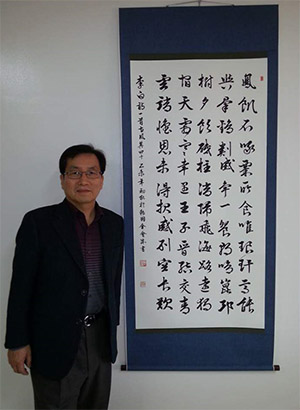 鳳飢不啄粟所食唯琅玕焉能
與羣鷄刺蹙爭一餐朝鳴崑邱
樹夕飲砥柱湍歸飛海路遠獨
宿天霜寒幸遇王子晉結交青
雲端懷恩未得報感別空長歎
李白詩一首古風其四十